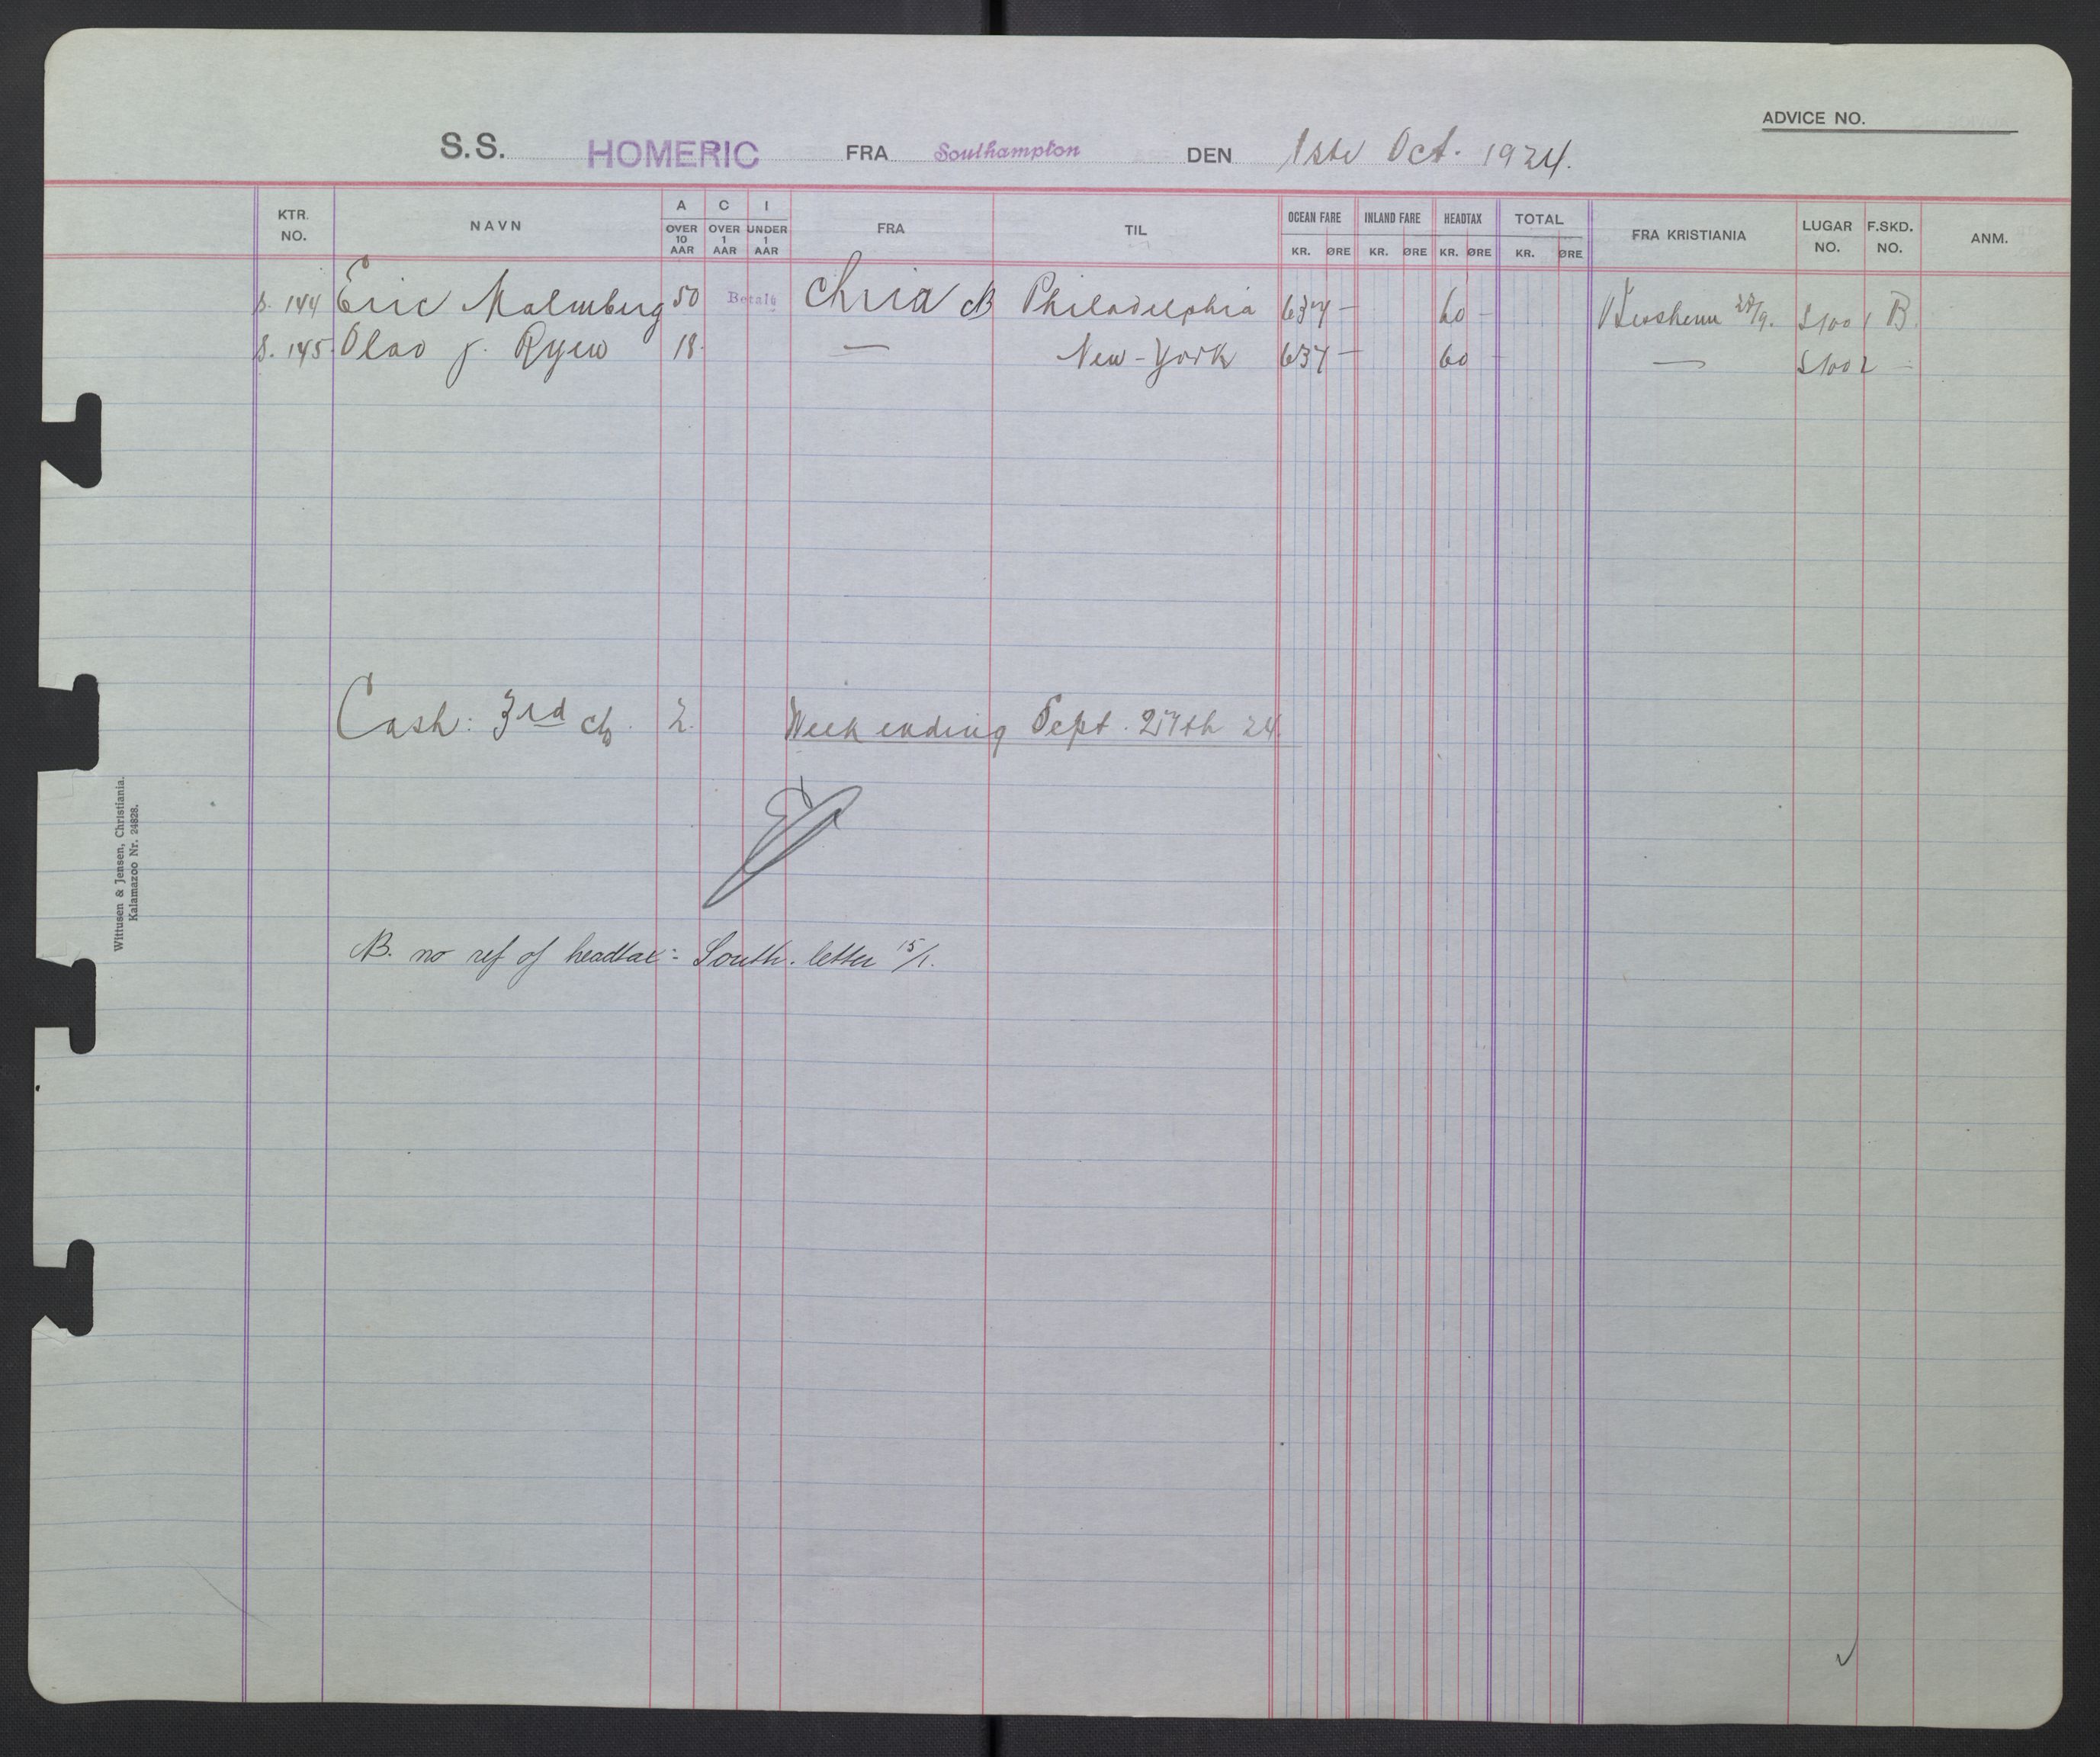 ADVICE NO.
S.S. HOMERIC FRA Southampton DEN 1ste Oct. 1924.
KTR. NO. NAVN A OVER 10 AAR C OVER 1 AAR I UNDER 1 AAR FRA TIL OCEAN FARE KR. ØRE INLAND FARE KR. ØRE HEADTAX KR. ØRE TOTAL KR. ØRE FRA KRISTIANIA LUGAR NO. F.SKD. NO. ANM.
S. 144 Eric Malmberg 50 Betalt Chria B Philadelphia 637 — 60 - S1001 B.
S. 145 Olav J. Ryen 18. — New-York 637 — 60 - — S1002 -
Cash: 3rd cl. 2. Week ending Sept. 27th 24.
B. no ref of headtax: South. letter 15/1.
Wittusen & Jensen, Christiania.
Kalamazoo Nr. 24828.